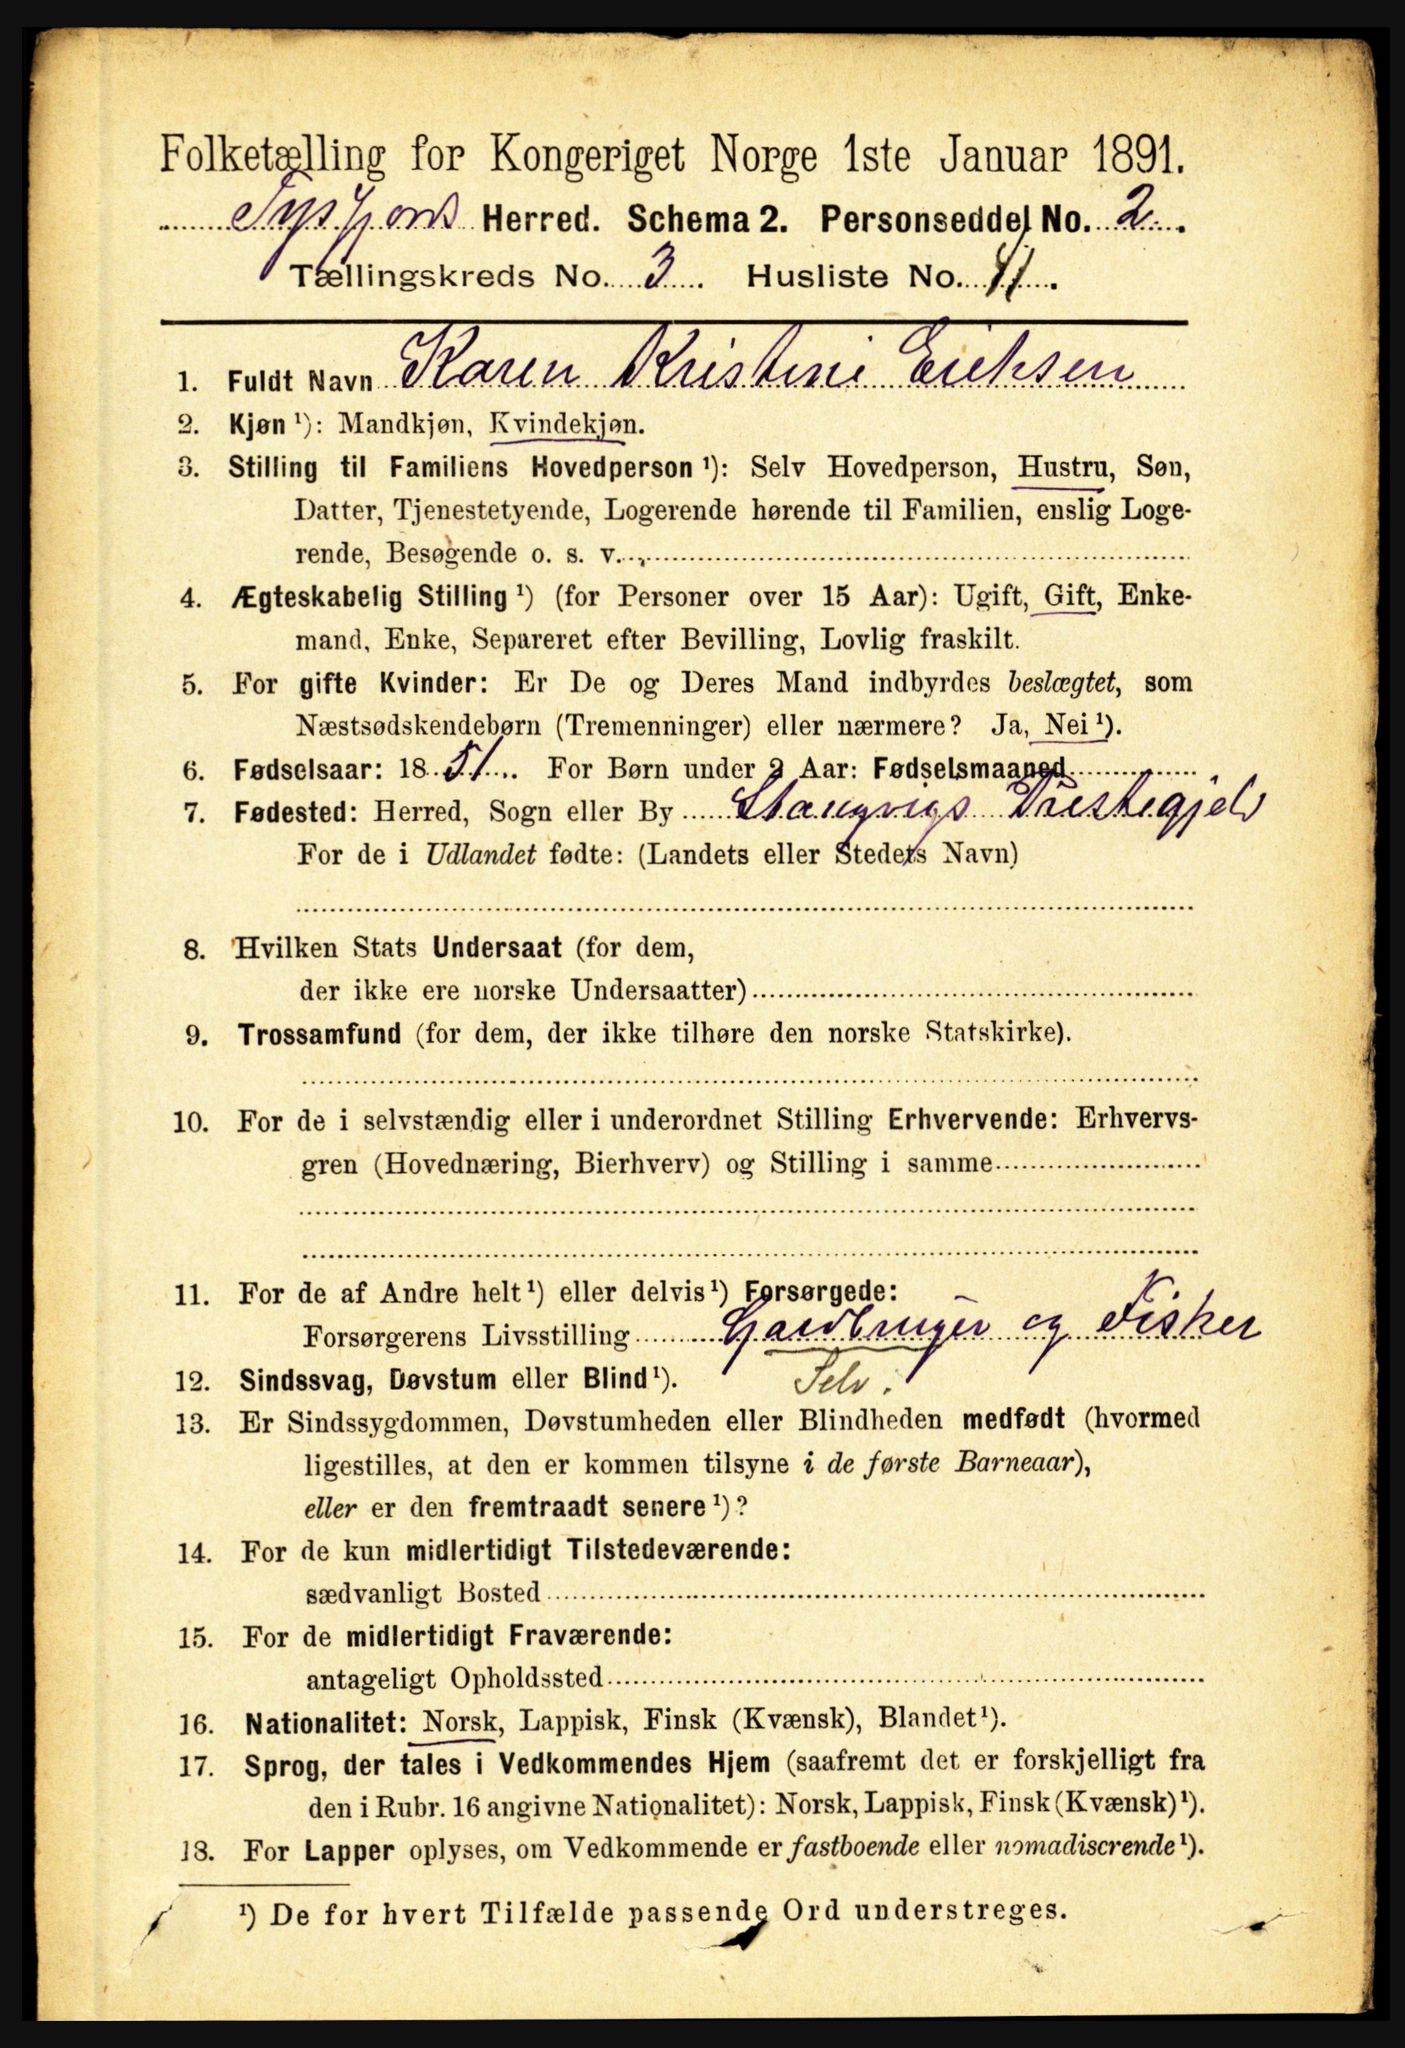 Folketælling for Kongeriget Norge 1ste Januar 1891.
Tysfjord Herred. Schema 2. Personseddel No. 2.
Tællingskreds No. 3. Husliste No. 41.
1. Fuldt Navn Karen Kristine Eriksen
2. Kjøn ¹): Mandkjøn, Kvindekjøn.
3. Stilling til Familiens Hovedperson ¹): Selv Hovedperson, Hustru, Søn,
Datter, Tjenestetyende, Logerende hørende til Familien, enslig Loge-
rende, Besøgende o. s. v.
4. Ægteskabelig Stilling ¹) (for Personer over 15 Aar): Ugift, Gift, Enke-
mand, Enke, Separeret efter Bevilling, Lovlig fraskilt.
5. For gifte Kvinder: Er De og Deres Mand indbyrdes beslægtet, som
Næstsødskendebørn (Tremenninger) eller nærmere? Ja, Nei ¹).
6. Fødselsaar: 1851. For Børn under 2 Aar: Fødselsmaaned
7. Fødested: Herred, Sogn eller By Stangvigs Prestegjeld
For de i Udlandet fødte: (Landets eller Stedets Navn)
8. Hvilken Stats Undersaat (for dem,
der ikke ere norske Undersaatter)
9. Trossamfund (for dem, der ikke tilhøre den norske Statskirke).
10. For de i selvstændig eller i underordnet Stilling Erhvervende: Erhvervs-
gren (Hovednæring, Bierhverv) og Stilling i samme
11. For de af Andre helt ¹) eller delvis ¹) Forsørgede:
Forsørgerens Livsstilling Gardbruger og Fisker
12. Sindssvag, Døvstum eller Blind ¹). Selv.
13. Er Sindssygdommen, Døvstumheden eller Blindheden medfødt (hvormed
ligestilles, at den er kommen tilsyne i de første Barneaar),
eller er den fremtraadt senere ¹)?
14. For de kun midlertidigt Tilstedeværende:
sædvanligt Bosted
15. For de midlertidigt Fraværende:
antageligt Opholdssted
16. Nationalitet: Norsk, Lappisk, Finsk (Kvænsk), Blandet ¹).
17. Sprog, der tales i Vedkommendes Hjem (saafremt det er forskjelligt fra
den i Rubr. 16 angivne Nationalitet): Norsk, Lappisk, Finsk (Kvænsk) ¹).
18. For Lapper oplyses, om Vedkommende er fastboende eller nomadiserende ¹).
¹) De for hvert Tilfælde passende Ord understreges.